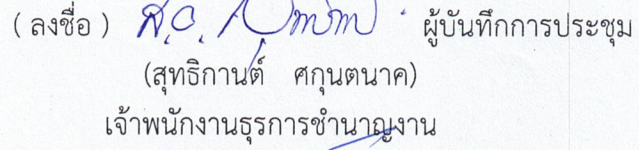 ( ลงชื่อ ) ส.อ. ผู้บันทึกการประชุม
(สุทธิกานต์ ศกุนตนาค)
เจ้าพนักงานธุรการชำนาญงาน